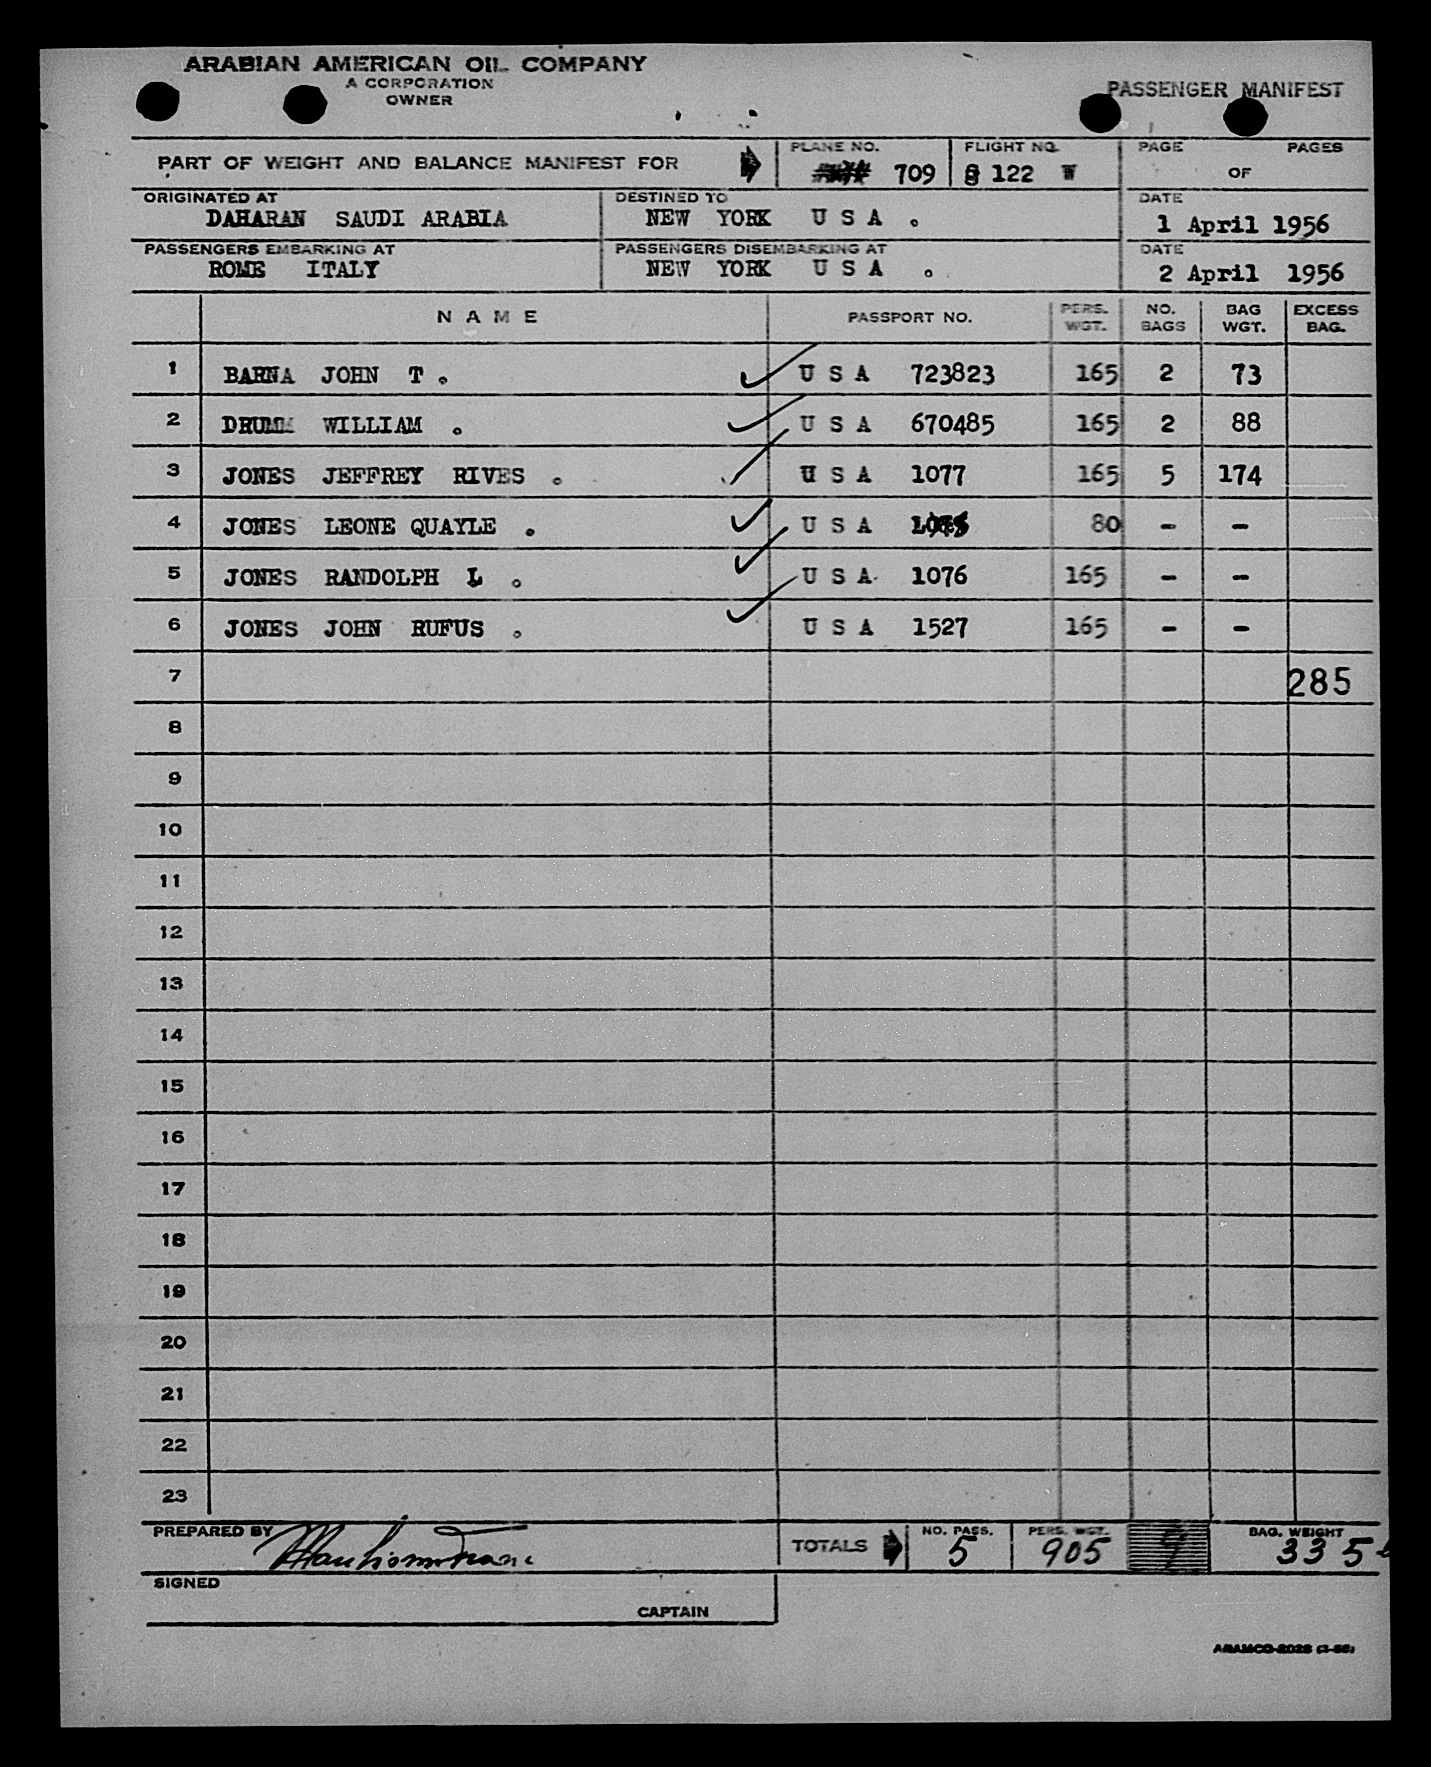 ARABIAN AMERICAN OIL COMPANY
A CORPORATION
OWNER
PASSENGER MANIFEST
PART OF WEIGHT AND BALANCE MANIFEST FOR
PLANE NO.
709
FLIGHT NO.
122 W
PAGE OF PAGES
ORIGINATED AT
DAHARAN SAUDI ARABIA
DESTINED TO
NEW YORK U S A .
DATE
1 April 1956
PASSENGERS EMBARKING AT
ROME ITALY
PASSENGERS DISEMBARKING AT
NEW YORK U S A .
DATE
2 April 1956
NAME PASSPORT NO. PERS. WGT. NO. BAGS BAG WGT. EXCESS BAG.
1 BARNA JOHN T . U S A 723823 165 2 73
2 DRUMM WILLIAM . U S A 670485 165 2 88
3 JONES JEFFREY RIVES . U S A 1077 165 5 174
4 JONES LEONE QUAYLE . U S A 80 - -
5 JONES RANDOLPH L . U S A 1076 165 - -
6 JONES JOHN RUFUS . U S A 1527 165 - -
7 285
8
9
10
11
12
13
14
15
16
17
18
19
20
21
22
23
PREPARED BY
TOTALS
NO. PASS.
5
PERS. WGT.
905
9
BAG. WEIGHT
335
SIGNED
CAPTAIN